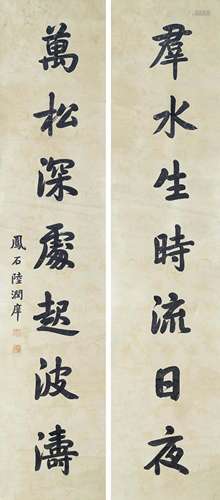 羣水生時流日夜
萬松深處起波濤
鳳石陸潤庠